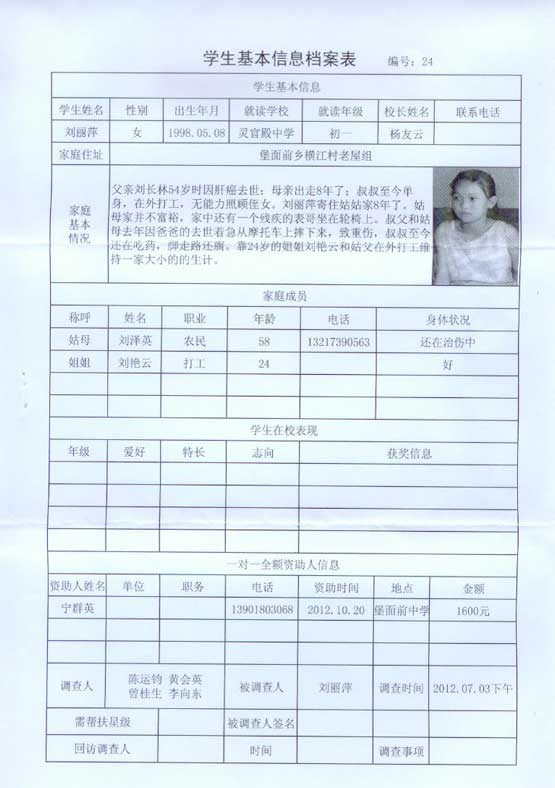 学生基本信息档案表 编号：24
学生基本信息
学生姓名 性别 出生年月 就读学校 就读年级 校长姓名 联系电话
刘丽萍 女 1998.05.08 灵官殿中学 初一 杨友云
家庭住址 堡面前乡横江村老屋组
家庭基本情况
父亲刘长林54岁时因肝癌去世；母亲出走8年了；叔叔至今单
身，在外打工，无能力照顾侄女。刘丽萍寄住姑姑家8年了。姑
母家并不富裕，家中还有一个残疾的表哥坐在轮椅上。叔父和姑
母去年因爸爸的去世着急从摩托车上摔下来，致重伤，叔叔至今
还在吃药，脚走路还痛。靠24岁的姐姐刘艳云和姑父在外打工维
持一家大小的的生计。
家庭成员
称呼 姓名 职业 年龄 电话 身体状况
姑母 刘泽英 农民 58 13217390563 还在治伤中
姐姐 刘艳云 打工 24 好
学生在校表现
年级 爱好 特长 志向 获奖信息
一对一全额资助人信息
资助人姓名 单位 职务 电话 资助时间 地点 金额
宁群英 13901803068 2012.10.20 堡面前中学 1600元
调查人 陈运钧 黄会英 曾桂生 李向东 被调查人 刘丽萍 调查时间 2012.07.03下午
需帮扶星级 被调查人签名
回访调查人 时间 调查事项